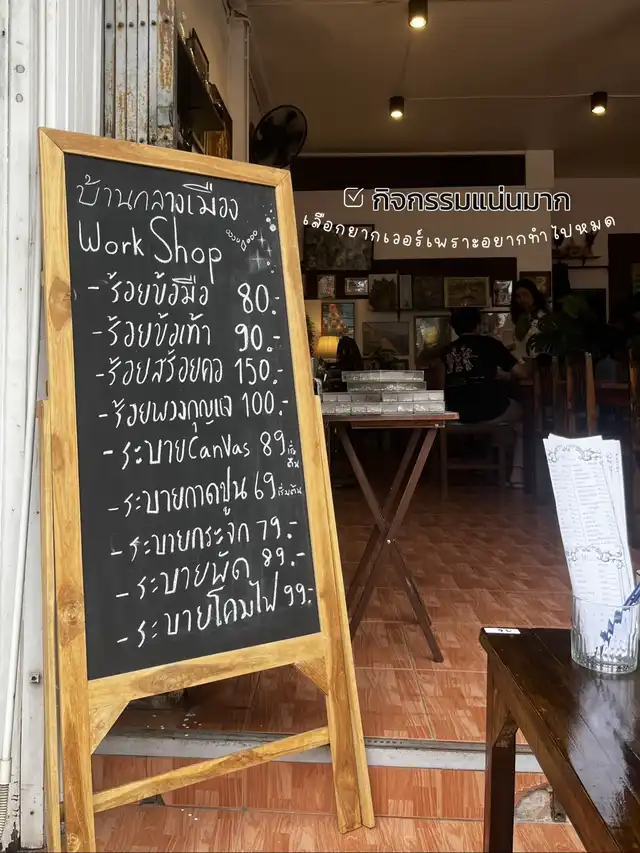 บ้านกลางเมือง
Work Shop
- ร้อยข้อมือ 80.-
- ร้อยข้อเท้า 90.-
- ร้อยสร้อยคอ 150.-
- ร้อยพวงกุญแจ 100.-
- ระบายCanVas 89 เริ่มต้น
- ระบายกาดปูน 69 เริ่มต้น
- ระบายกระจก 79.-
- ระบายพัด 89.-
- ระบายโคมไฟ 99.-
กิจกรรมแน่นมาก
เลือกยากเวอร์เพราะอยากทำไปหมด